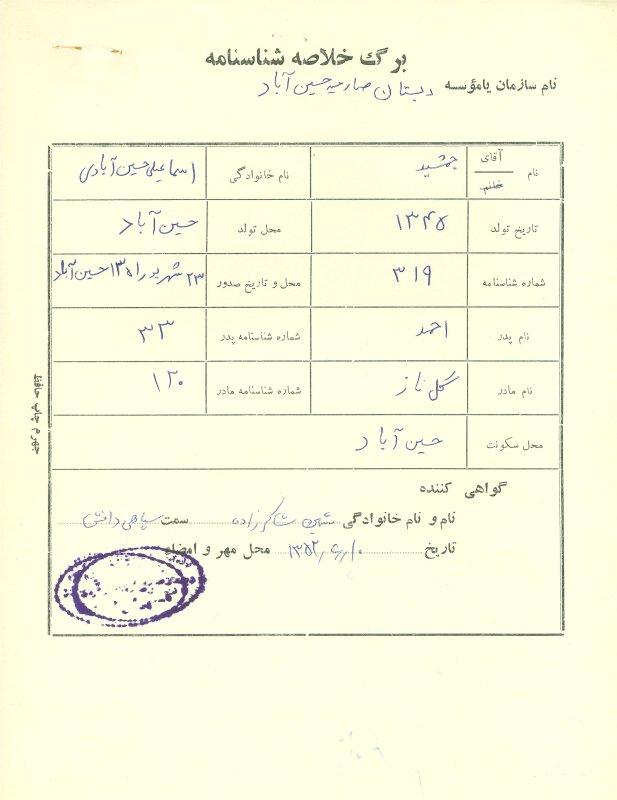 برگ خلاصه شناسنامه
نام سازمان یا مؤسسه دبستان صارمیه حسین آباد
نام آقای خانم جمشید نام خانوادگی اسماعیلی حسین آبادی
تاریخ تولد ۱۳۴۵ محل تولد حسین آباد
شماره شناسنامه ۳۱۹ محل و تاریخ صدور ۲۳ شهریور حسین آباد
نام پدر احمد شماره شناسنامه پدر ۳۳
نام مادر گل ناز شماره شناسنامه مادر ۱۲۰
محل سکونت حسین آباد
گواهی کننده
نام و نام خانوادگی شاکرزاده سمت سپاهی دانش
تاریخ محل مهر و امضاء
جهرم چاپ حافظ